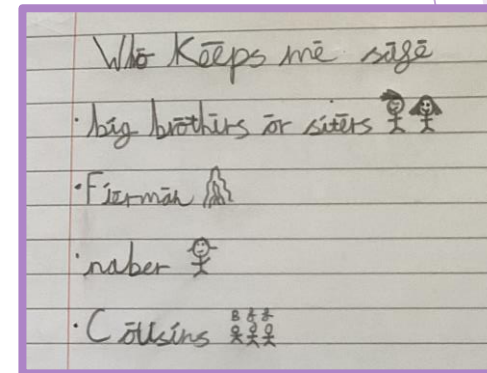 Who Keeps me safe
· big brothers or siters
· Fierman
· naber
· Cousins